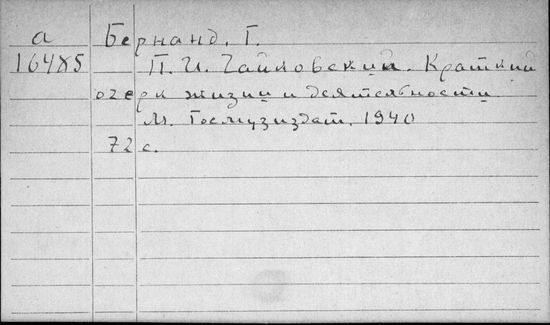 а Бернанд, Г.
16485 П. И. Чайковский. Краткий
очерк жизни и деятельности
М. Госмузиздат. 1940
72 с.